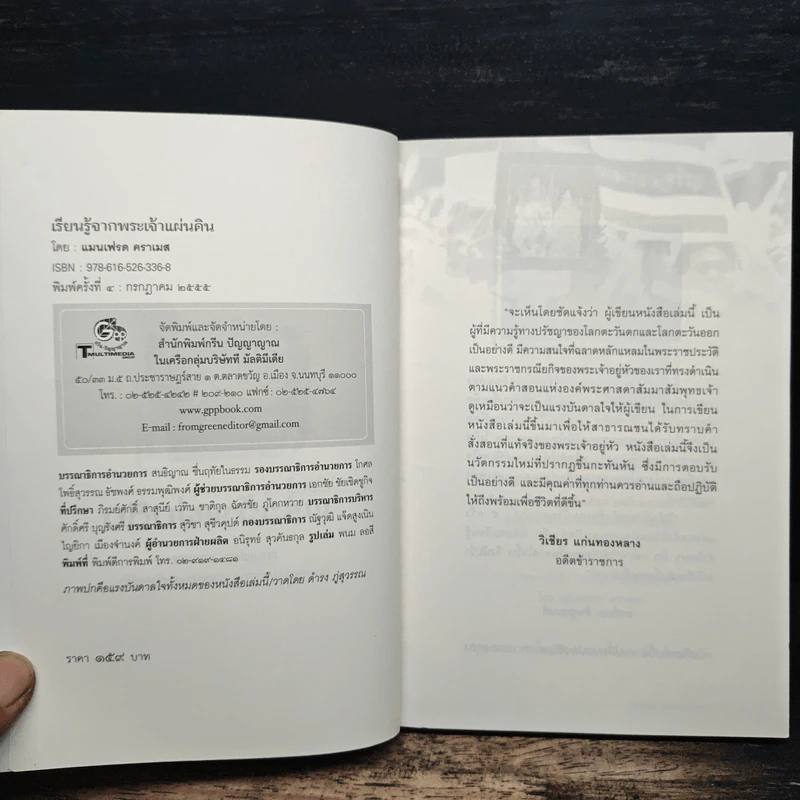 เรียนรู้จากพระเจ้าแผ่นดิน
โดย : แมนเฟรด คราเมส
ISBN : 978-616-526-336-8
พิมพ์ครั้งที่ ๔ : กรกฎาคม ๒๕๕๕
GPP
T MULTIMEDIA
จัดพิมพ์และจัดจำหน่ายโดย :
สำนักพิมพ์กรีน ปัญญาญาณ
ในเครือกลุ่มบริษัทที มัลติมีเดีย
๕๐/๓๓ ม.๕ ถ.ประชาราษฎร์สาย ๑ ต.ตลาดขวัญ อ.เมือง จ.นนทบุรี ๑๑๐๐๐
โทร. : ๐๒-๕๒๕-๔๒๔๒ # ๒๐๙-๒๑๐ แฟกซ์ : ๐๒-๕๒๕-๔๗๖๔
www.gppbook.com
E-mail : fromgreeneditor@gmail.com
บรรณาธิการอำนวยการ สนธิญาณ ชื่นฤทัยในธรรม รองบรรณาธิการอำนวยการ โกศล
โพธิ์สุวรรณ ธัชพงศ์ ธรรมพุฒิพงศ์ ผู้ช่วยบรรณาธิการอำนวยการ เอกชัย ชัยเชิดชูกิจ
ที่ปรึกษา ภิรมย์ศักดิ์ สาสุนีย์ เวทิน ชาติกุล ฉัตรชัย ภู่โคกหวาย บรรณาธิการบริหาร
ศักดิ์ศรี บุญรังศรี บรรณาธิการ สุวิชา สุขีวคุปต์ กองบรรณาธิการ ณัฐวุฒิ แจ็ดสูงเนิน
ไญยิกา เมืองจำนงค์ ผู้อำนวยการฝ่ายผลิต อนิรุทธ์ สุวคันธกุล รูปเล่ม พนม ลอสี
พิมพ์ที่ พิมพ์ดีการพิมพ์ โทร. ๐๒-๙๑๙-๑๔๘๑
ภาพปกคือแรงบันดาลใจทั้งหมดของหนังสือเล่มนี้/วาดโดย ดำรง ภู่สุวรรณ
ราคา ๑๕๙ บาท
"จะเห็นโดยชัดแจ้งว่า ผู้เขียนหนังสือเล่มนี้ เป็น
ผู้ที่มีความรู้ทางปรัชญาของโลกตะวันตกและโลกตะวันออก
เป็นอย่างดี มีความสนใจที่ฉลาดหลักแหลมในพระราชประวัติ
และพระราชกรณียกิจของพระเจ้าอยู่หัวของเราที่ทรงดำเนิน
ตามแนวคำสอนแห่งองค์พระศาสดาสัมมาสัมพุทธเจ้า
ดูเหมือนว่าจะเป็นแรงบันดาลใจให้ผู้เขียน ในการเขียน
หนังสือเล่มนี้ขึ้นมาเพื่อให้สาธารณชนได้รับทราบคำ
สั่งสอนที่แท้จริงของพระเจ้าอยู่หัว หนังสือเล่มนี้จึงเป็น
นวัตกรรมใหม่ที่ปรากฏขึ้นกะทันหัน ซึ่งมีการตอบรับ
เป็นอย่างดี และมีคุณค่าที่ทุกท่านควรอ่านและถือปฏิบัติ
ให้ถึงพร้อมเพื่อชีวิตที่ดีขึ้น"
วิเชียร แก่นทองหลาง
อดีตข้าราชการ